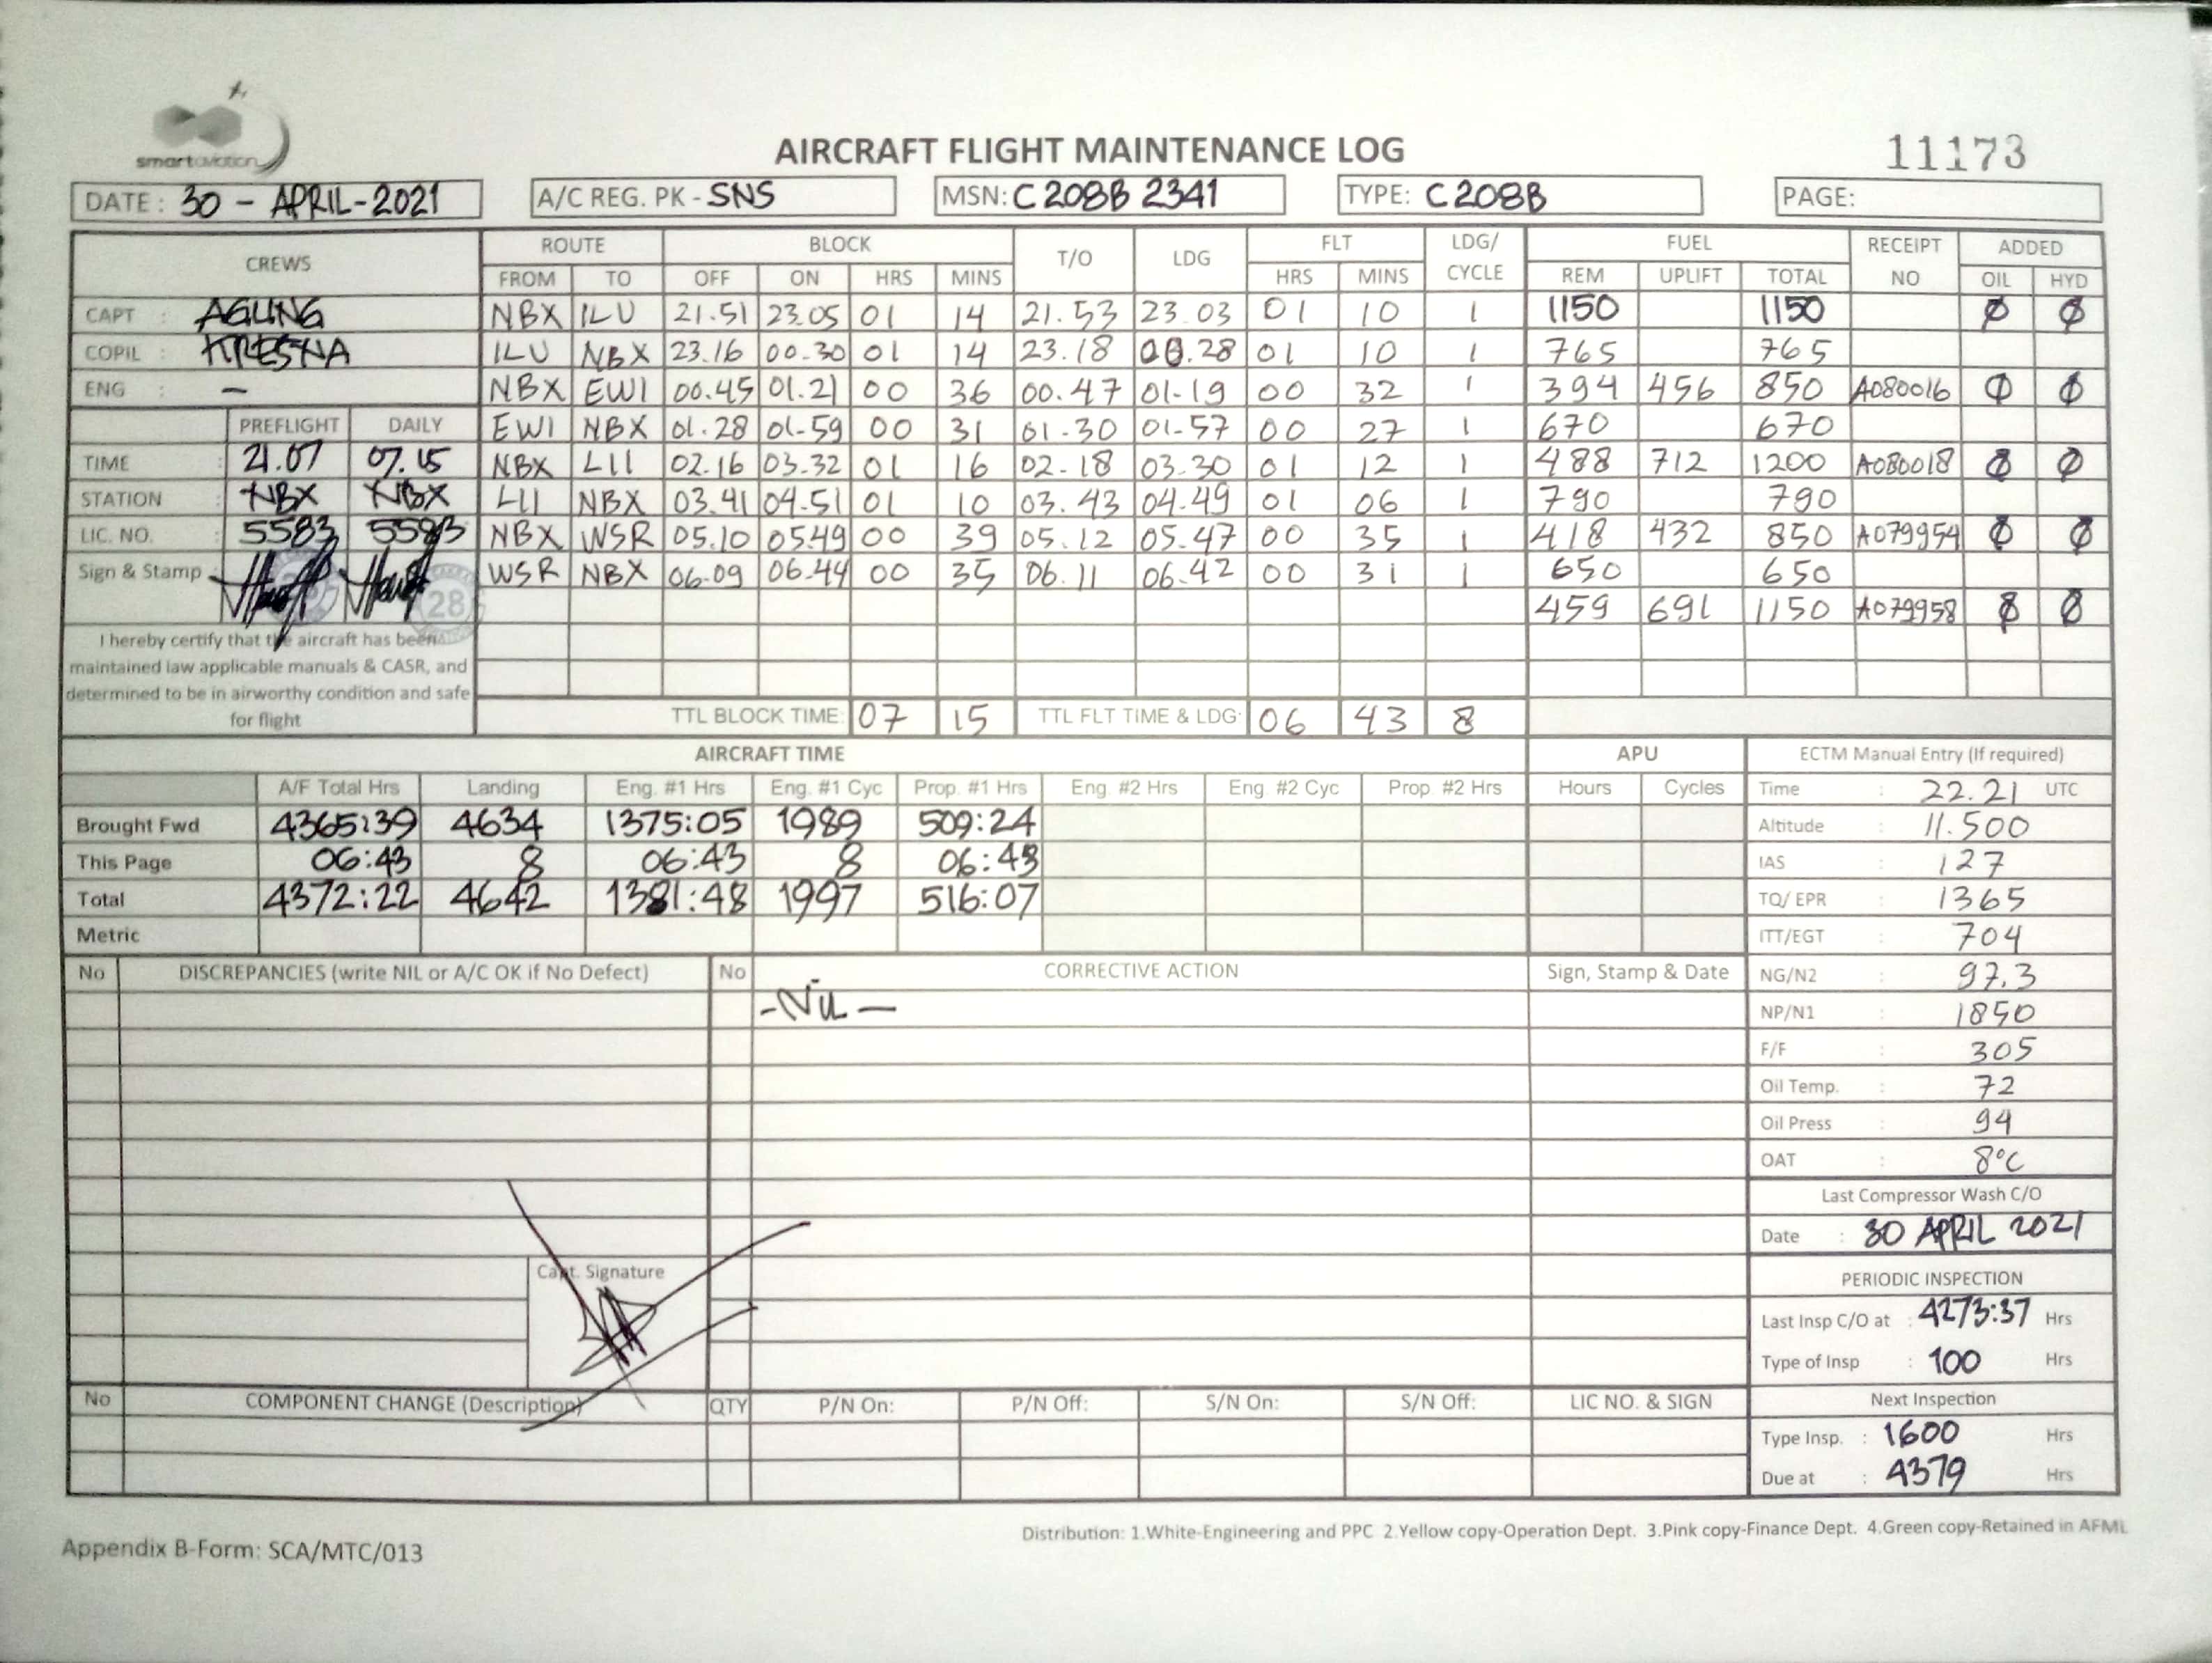 smart aviation
AIRCRAFT FLIGHT MAINTENANCE LOG
11173
DATE : 30 - APRIL-2021 A/C REG. PK - SNS MSN: C 208B 2341 TYPE: C 208B PAGE:
CREWS ROUTE BLOCK T/O LDG FLT LDG/ CYCLE FUEL RECEIPT NO ADDED
FROM TO OFF ON HRS MINS HRS MINS REM UPLIFT TOTAL OIL HYD
CAPT : AGUNG NBX ILU 21.51 23.05 01 14 21.53 23.03 01 10 1 1150 1150 Ø Ø
COPIL : KRESNA ILU NBX 23.16 00.30 01 14 23.18 00.28 01 10 1 765 765
ENG : - NBX EWI 00.45 01.21 00 36 00.47 01.19 00 32 1 394 456 850 A080016 Ø Ø
PREFLIGHT DAILY EWI NBX 01.28 01-59 00 31 01.30 01-57 00 27 1 670 670
TIME : 21.07 07.15 NBX LII 02.16 03.32 01 16 02.18 03.30 01 12 1 488 712 1200 A080018 Ø Ø
STATION : NBX NBX LII NBX 03.41 04.51 01 10 03.43 04.49 01 06 1 790 790
LIC. NO. : 5583 5583 NBX WSR 05.10 05.49 00 39 05.12 05.47 00 35 1 418 432 850 A079954 Ø Ø
Sign & Stamp 28 WSR NBX 06.09 06.44 00 35 06.11 06.42 00 31 1 650 650
459 691 1150 A079958 Ø Ø
I hereby certify that the aircraft has been
maintained law applicable manuals & CASR, and
determined to be in airworthy condition and safe
for flight
TTL BLOCK TIME: 07 15 TTL FLT TIME & LDG: 06 43 8
AIRCRAFT TIME APU ECTM Manual Entry (If required)
A/F Total Hrs Landing Eng. #1 Hrs Eng. #1 Cyc Prop. #1 Hrs Eng. #2 Hrs Eng. #2 Cyc Prop. #2 Hrs Hours Cycles Time : 22.21 UTC
Brought Fwd 4365:39 4634 1375:05 1989 509:24 Altitude : 11.500
This Page 06:43 8 06:43 8 06:43 IAS : 127
Total 4372:22 4642 1381:48 1997 516:07 TQ/ EPR : 1365
Metric ITT/EGT : 704
No DISCREPANCIES (write NIL or A/C OK if No Defect) No CORRECTIVE ACTION Sign, Stamp & Date NG/N2 : 97.3
- NIL - NP/N1 : 1850
F/F : 305
Oil Temp. : 72
Oil Press : 94
OAT : 8°C
Last Compressor Wash C/O
Date : 30 APRIL 2021
Capt. Signature
PERIODIC INSPECTION
Last Insp C/O at : 4273:37 Hrs
Type of Insp : 100 Hrs
No COMPONENT CHANGE (Description) QTY P/N On: P/N Off: S/N On: S/N Off: LIC NO. & SIGN Next Inspection
Type Insp. : 1600 Hrs
Due at : 4379 Hrs
Distribution: 1.White-Engineering and PPC 2.Yellow copy-Operation Dept. 3.Pink copy-Finance Dept. 4.Green copy-Retained in AFML
Appendix B-Form: SCA/MTC/013